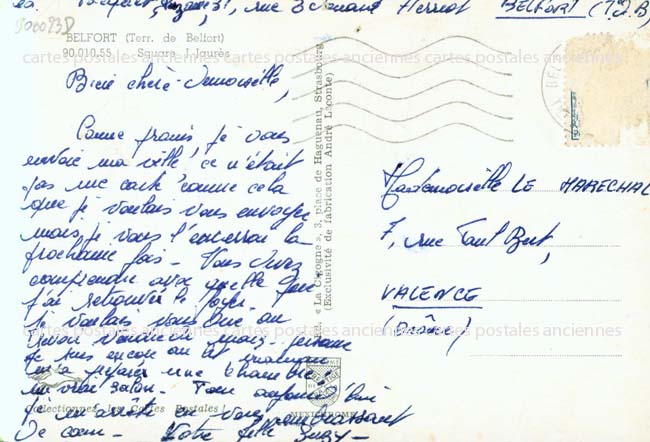 rue Edouard Herriot BELFORT (T.D.B)
900093D
BELFORT (Terr. de Belfort)
90.010.55 Square J.Jaurès
cartes postales anciennes cartes postales anciennes cartes postales anciennes
Bien chère Demoiselle,
Comme promis, je vous
envoie ma ville, ce n'était
pas une carte comme cela
que je voulais vous envoyer
mais je vous l'enverrai la
prochaine fois - Vous devez
comprendre avec quelle joie
j'ai retrouvé le foyer.
je voulais vous dire au
revoir vendredi mais personne
Je suis encore au lit maman
m'a préparé une chambre,
un vrai salon -
je m'arrête en vous embrassant
de coeur - Votre fille Suzy -
« La Cigogne », 3, place de Haguenau, Strasbourg
(Exclusivité de fabrication André Leconte)
Mademoiselle LE MARECHAL
7, rue Paul Bert,
VALENCE
(Drôme)
cartes postales anciennes cartes postales anciennes
Collectionnez les Cartes Postales !
MEXICHROME